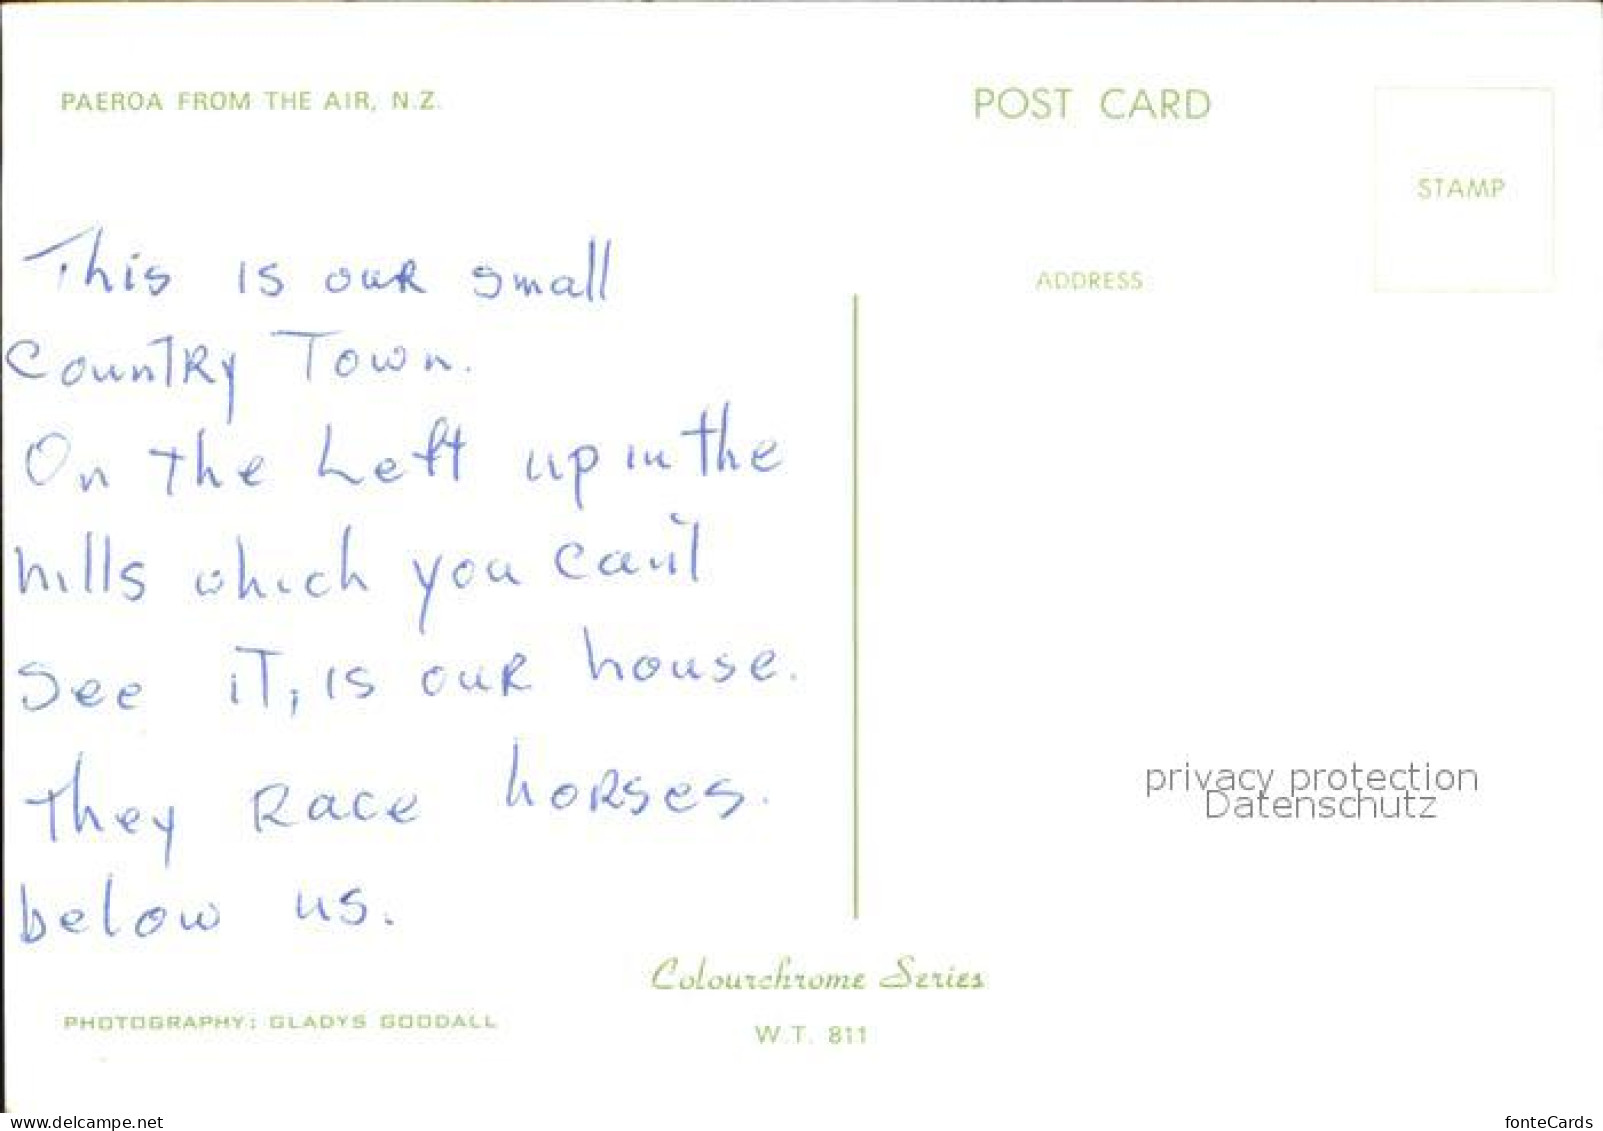 PAEROA FROM THE AIR, N.Z.
POST CARD
STAMP
ADDRESS
This is our small
Country Town.
On the Left up in the
hills which you can't
see it, is our house.
They race horses.
below us.
privacy protection
Datenschutz
Colourchrome Series
PHOTOGRAPHY: GLADYS GOODALL
W.T. 811
www.delcampe.net
fonteCards